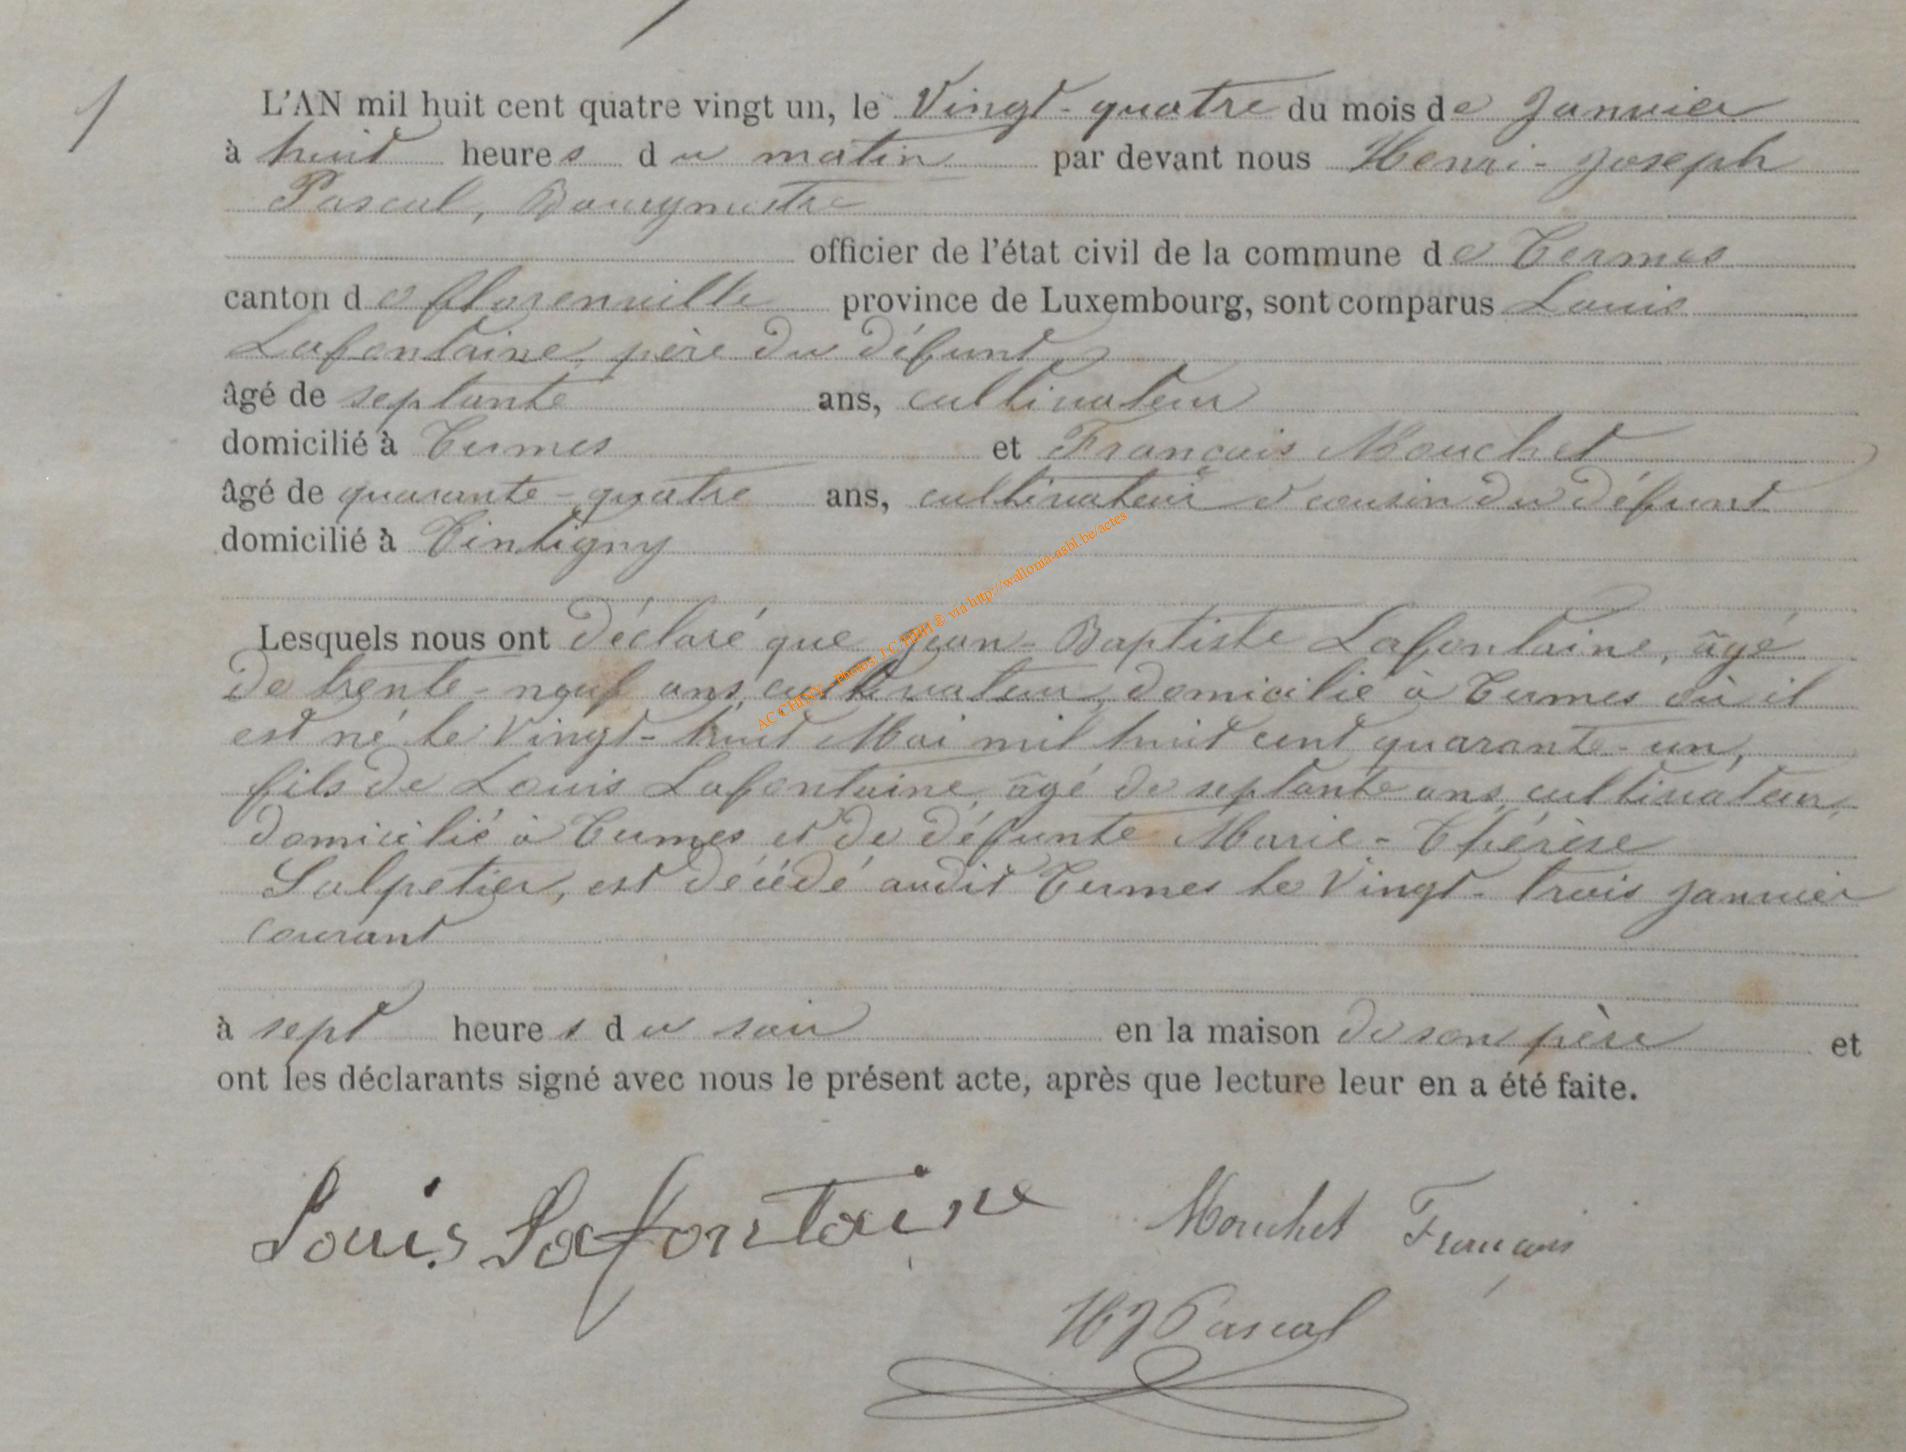 1
L'AN mil huit cent quatre vingt un, le Vingt-quatre du mois de Janvier
à huit heures du matin par devant nous Henri-Joseph
Pascal, Bourgmestre
officier de l'état civil de la commune de Termes
canton de florenville province de Luxembourg, sont comparus Louis
Lafontaine, père du défunt,
âgé de septante ans, cultivateur
domicilié à Termes et François Mouchet
âgé de quarante-quatre ans, cultivateur et cousin du défunt
domicilié à Tintigny
Lesquels nous ont déclaré que Jean-Baptiste Lafontaine, âgé
de trente-neuf ans, cultivateur, domicilié à Termes où il
est né le Vingt-huit Mai mil huit cent quarante-un,
fils de Louis Lafontaine, âgé de septante ans, cultivateur,
domicilié à Termes et de défunte Marie-Thérèse
Salpetier, est décédé audit Termes le Vingt-trois janvier
courant
à sept heures du soir en la maison de son père et
ont les déclarants signé avec nous le présent acte, après que lecture leur en a été faite.
Louis Lafontaine Mouchet François
HJ Pascal
AC CHINY - Photos: J.C. ® via http://wallonia-asbl.be/actes